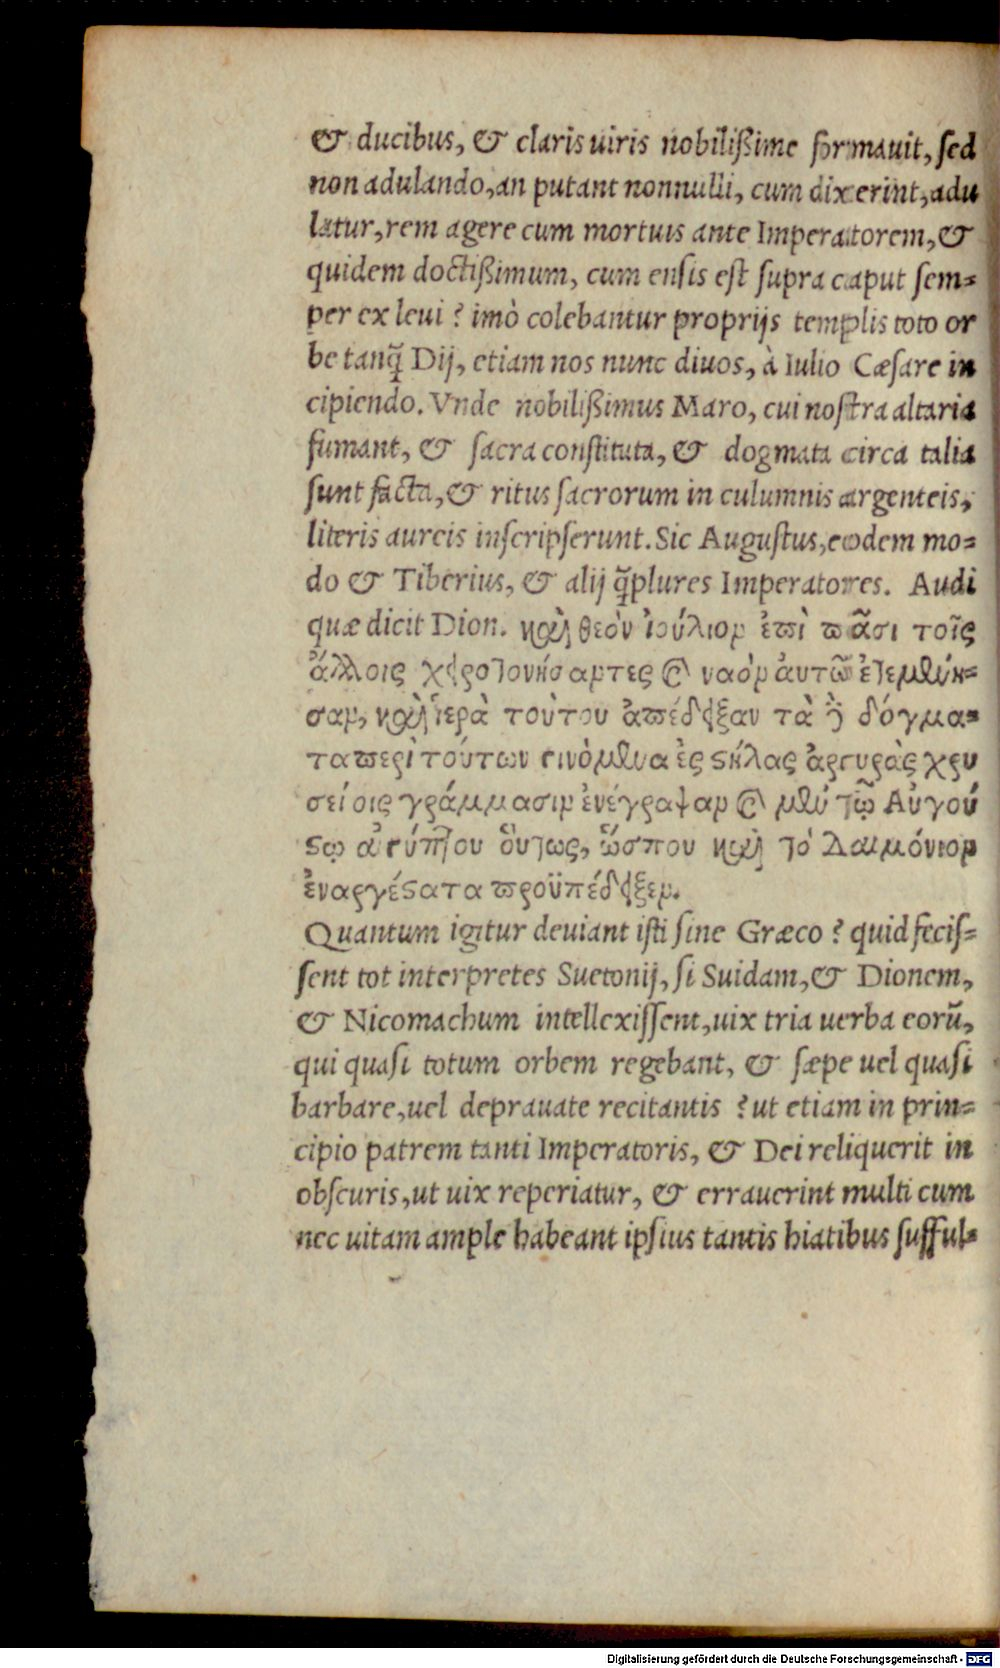 & ducibus, & claris uiris nobilißime formauit, sed
non adulando, an putant nonnulli, cum dixerint, adu
latur, rem agere cum mortuis ante Imperatorem, &
quidem doctißimum, cum ensis est supra caput sem=
per ex leui? imò colebantur proprijs templis toto or
be tanq̃ Dij, etiam nos nunc diuos, à Iulio Cæsare in
cipiendo. Vnde nobilißimus Maro, cui nostra altaria
fumant, & sacra constituta, & dogmata circa talia
sunt facta, & ritus sacrorum in culumnis argenteis,
literis aureis inscripserunt. Sic Augustus, eodem mo=
do & Tiberius, & alij q̃plures Imperatores. Audi
quæ dicit Dion. καὶ θεὸν ἰούλιον ἐπὶ πᾶσι τοῖς
ἄλλοις χειροτονήσαντες καὶ ναὸν ἀυτῶ ἐτεμένι=
σαν, καὶ ἱερὰ τοὺτου ἀπέδειξαν τὰ δόγμα=
τα περὶ τούτων γινὸμενα ἐς στήλας ἀργυρὰς χρυ
σείοις γράμμασιν ἐνέγραψαν καὶ μὲν τῷ Αὐγού
στῳ ἀιγύπτου ὃυτως, ὥσπου καὶ τὸ Δαιμόνιον
ἐναργέστατα προϋπέδειξεν.
Quantum igitur deuiant isti sine Græco? quid fecis=
sent tot interpretes Suetonij, si Suidam, & Dionem,
& Nicomachum intellexissent, uix tria uerba eorũ,
qui quasi totum orbem regebant, & sæpe uel quasi
barbare, uel deprauate recitantis? ut etiam in prin=
cipio patrem tanti Imperatoris, & Dei reliquerit in
obscuris, ut uix reperiatur, & errauerint multi cum
nec uitam ample habeant ipsius tantis hiatibus sufful=
Digitalisierung gefördert durch die Deutsche Forschungsgemeinschaft - DFG